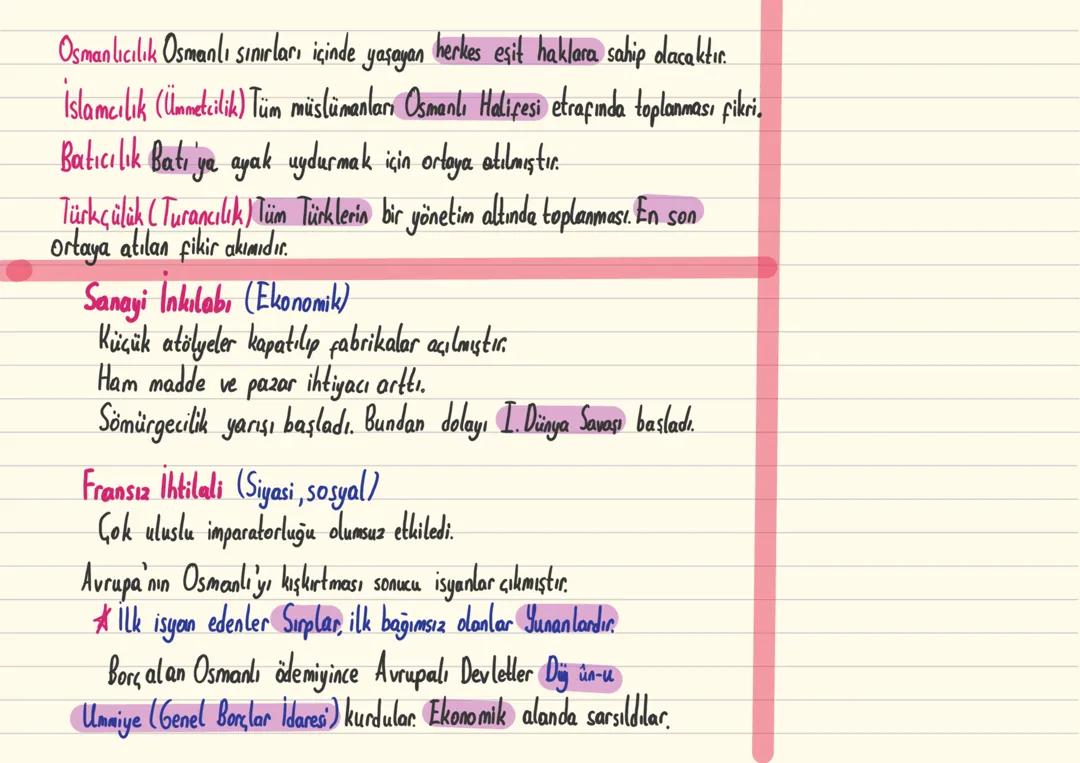 Osmanlıcılık Osmanlı sınırları içinde yaşayan herkes eşit haklara sahip olacaktır.
İslamcılık (Ümmetcilik) Tüm müslümanları Osmanlı Halifesi etrafında toplanması fikri.
Batıcılık Batı'ya ayak uydurmak için ortaya atılmıştır.
Türkçülük (Turancılık) Tüm Türklerin bir yönetim altında toplanması. En son
ortaya atılan fikir akımıdır.
Sanayi İnkılabı (Ekonomik)
Küçük atölyeler kapatılıp fabrikalar açılmıştır.
Ham madde ve pazar ihtiyacı arttı.
Sömürgecilik yarışı başladı. Bundan dolayı I. Dünya Savaşı başladı.
Fransız İhtilali (Siyasi, sosyal)
Çok uluslu imparatorluğu olumsuz etkiledi.
Avrupa'nın Osmanlı'yı kışkırtması sonucu isyanlar çıkmıştır.
★ İlk isyan edenler Sırplar, ilk bağımsız olanlar Yunanlardır.
Borç alan Osmanlı ödemiyince Avrupalı Devletler Düyûn-u
Umniye (Genel Borçlar İdaresi) kurdular. Ekonomik alanda sarsıldılar.